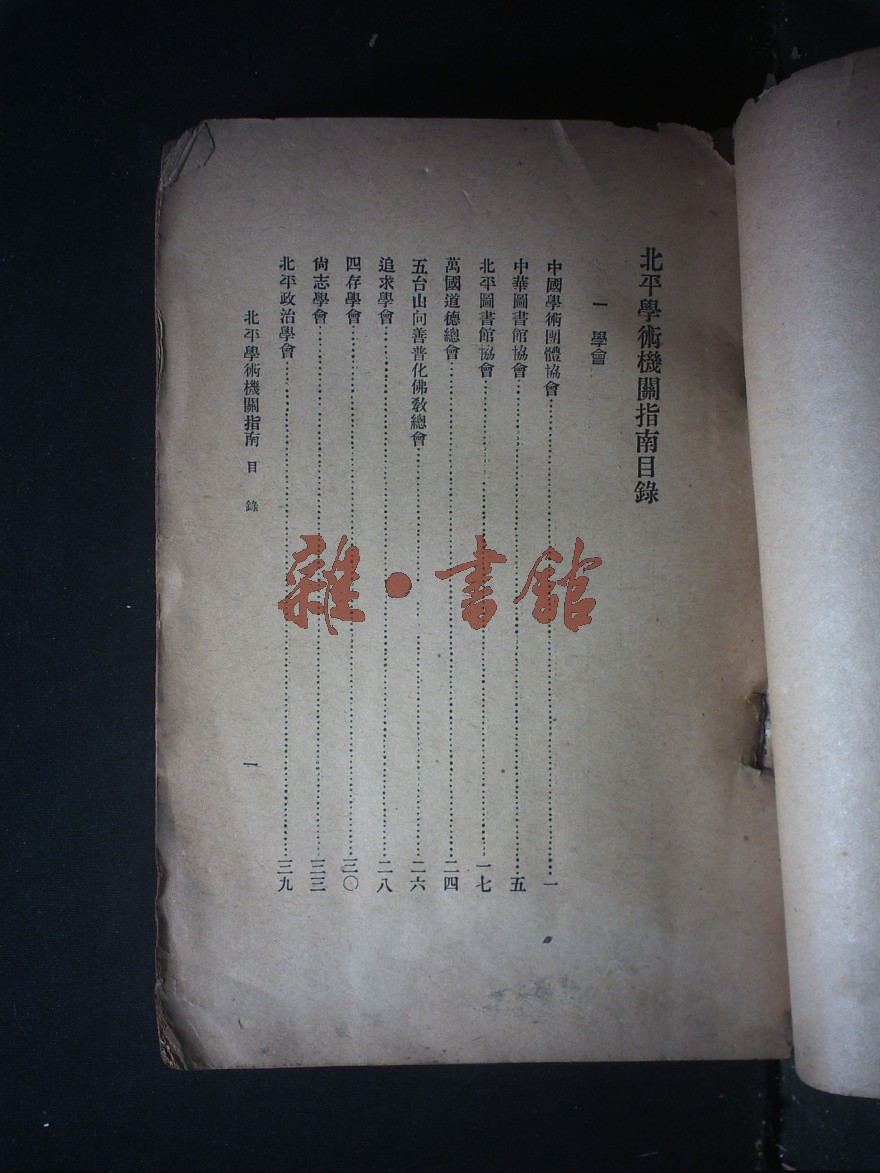 北平學術機關指南目錄
一 學會
中國學術團體協會……一
中華圖書館協會……五
北平圖書館協會……一七
萬國道德總會……二四
五台山向善普化佛教總會……二六
追求學會……二八
四存學會……三〇
尙志學會……三三
北平政治學會……三九
北平學術機關指南 目 錄
一
雜·書館